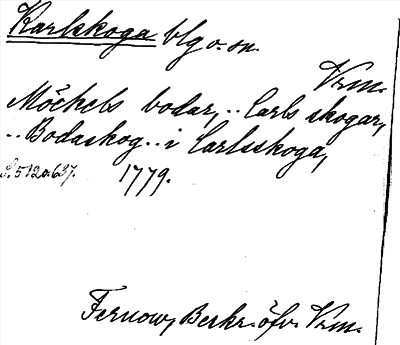 Karlskoga blg o. sn.
Vrm.
Möckels bodar, .. Carls skogar,
.. Bodaskog .. i Carlsskoga,
S. 512 o. 637. 1779.
Fernow, Beskr. öfv. Vrm.